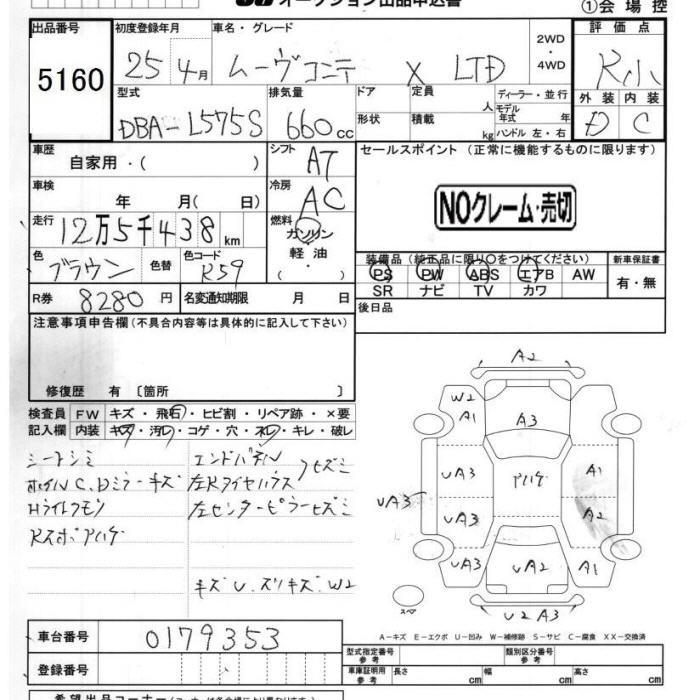 オークション出品申込書
①会場控
出品番号 初度登録年月 車名・グレード 2WD・4WD 評価点
5160 25年4月 ムーヴコンテ X LTD R小
型式 排気量 ドア 定員 人 ディーラー・並行 外装 内装
DBA-L575S 660cc 形状 積載 kg モデル年式 年 ハンドル 左・右 D C
車歴 自家用・( ) シフト AT セールスポイント (正常に機能するものに限ります)
車検 年 月( 日) 冷房 AC NOクレーム・売切
走行 12万5千438km 燃料 ガソリン 軽油 ( ・ )
色 ブラウン 色替 色コード R59
装備品 (純正品に限り○をつけてください) 新車保証書
PS PW ABS エアB AW 有・無
SR ナビ TV カワ
R券 8280円 名変通知期限 月 日 後日品
注意事項申告欄 (不具合内容等は具体的に記入して下さい)
修復歴 有 [箇所 ]
検査員記入欄 FW キズ・飛石・ヒビ割・リペア跡・×要
内装 キズ・汚レ・コゲ・穴・スレ・キレ・破レ
シートシミ エンドパネル ヘコミ
ホイルC,Dミラーキズ
Hライトクモリ
Rスポアハゲ
キズU.ズリキズ.W2
A2
W2
A1
A3
UA3
アハゲ
A1
UA3
UA3
A2
UA3
UA2
A1
スペア
U2 A3
A-キズ E-エクボ U-凹み W-補修跡 S-サビ C-腐食 XX-交換済
車台番号 0179353
型式指定番号 参考 類別区分番号 参考
登録番号
車庫証明用 参考 長さ cm 幅 cm 高さ cm
希望出品コーナー